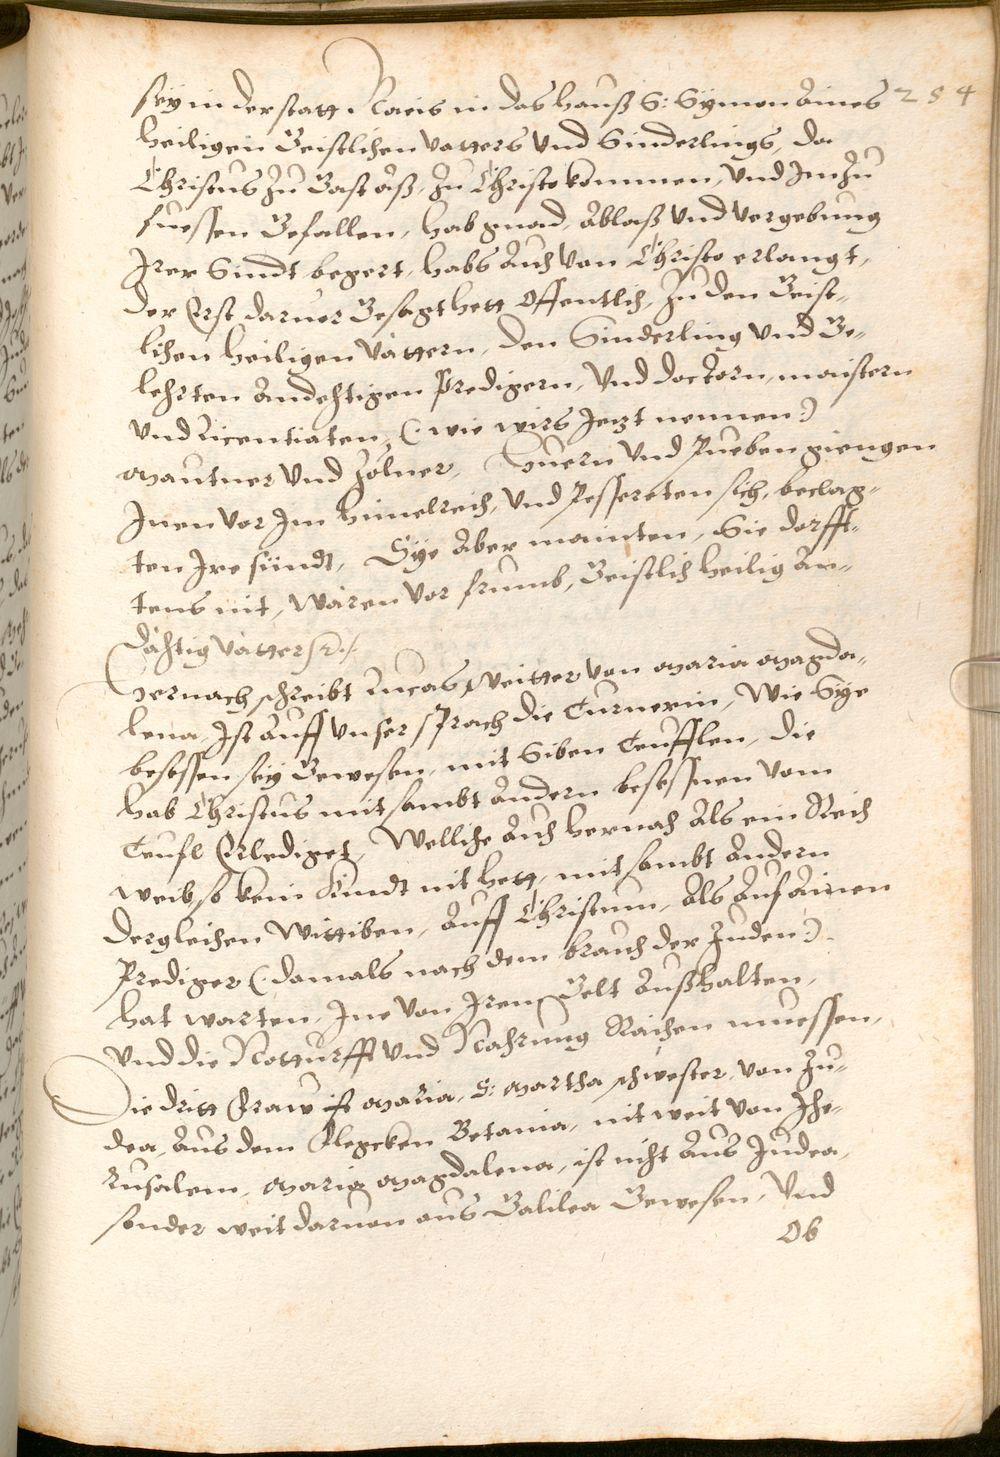 sey in der statt Nais in das hauß S: Symon Aines 254
heiligen Geistlichen vatters vnd Sinderlings, da
Christus zu Gast aß, zu Christo kommen, vnd Im zu
fuessen Gefallen, hab gnad, Ablaß vnd vergebung
Irer Sindt begert, habs Auch von Christo erlangt,
der Erst daruor Gesagt hett Offentlich, zu den Geist-
lichen heiligen vättern, den Sinderling vnd Ge-
lehrten Andechtigen Predigern, vnd doctorn, maistern
vnd Licentiaten, (: wie wirs Jetzt nennen :)
Mautner vnd Zölner, Huern vnd Pueben giengen
Inen vor Im himelreich, vnd Pesserten sich, beclag-
ten Ire sündt, Sye Aber mainten, Sie dorfft-
tens nit, wären vor frumb, Geistlich heilig An-
dächtig vätter
Hernach schreibt Lucas weitter von Maria Magda-
lena, Ist Auff vnser sprach die Turnerin, Wie Sye
besessen sey Gewesen, mit Siben Teufflen, die
hab Christus mit sambt Andern besessnen vom
Teufl Erlediget, Welliche Auch hernach Als ein Reich
weib, so kein Kindt nit hett, mit sambt Andern
dergleichen Wittiben, Auff Christum, Als Auf Ainen
Prediger (: damals nach dem brauch der Juden :)
hat warten, Ine von Irem Gelt Außhalten,
vnd die Notturfft vnd Nahrung Raichen muessen,
Die dritt Fraw ist Maria, S: Martha schwester, von Ju-
dea, Aus dem Flegcken Betania, nit weit von Jhe-
rusalem, Maria Magdalena, ist nicht Aus Judea,
sonder weit daruon aus Galilea Gewesen, Vnd
Ob